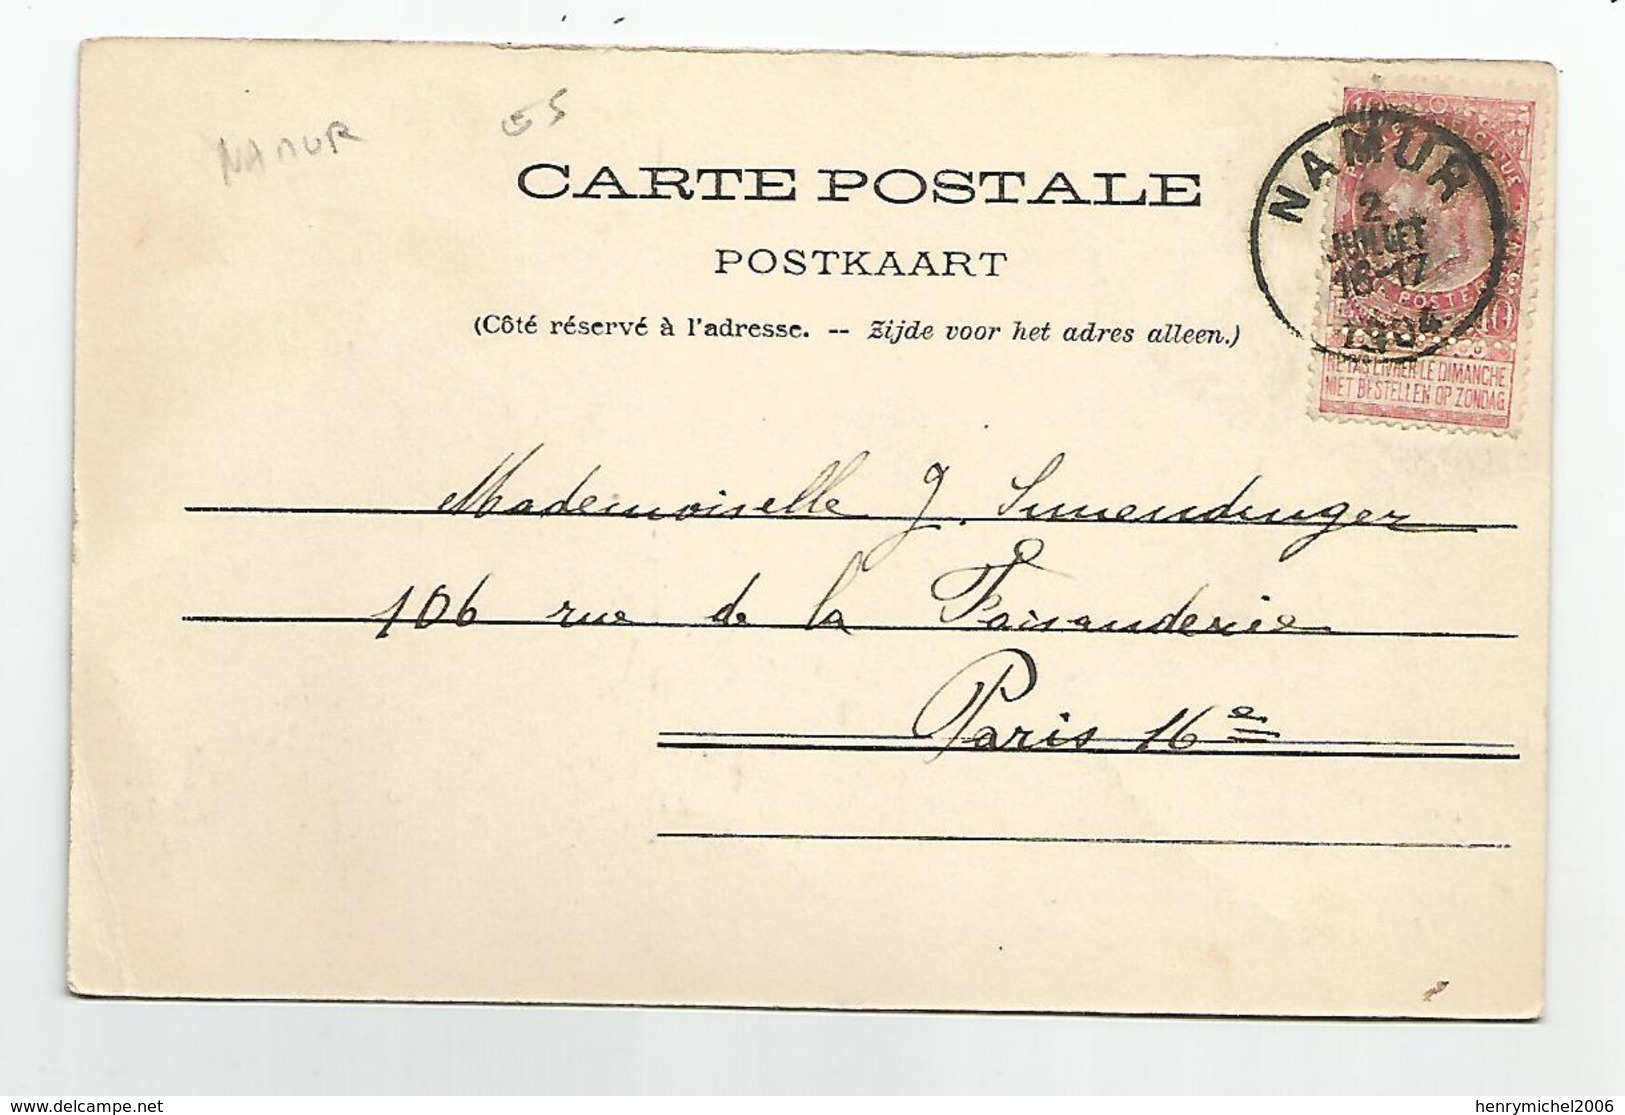 NAMUR
ES
CARTE POSTALE
POSTKAART
(Côté réservé à l'adresse. -- Zijde voor het adres alleen.)
NAMUR
2
JUILLET
16-17
1904
POSTERIJEN
10
NE PAS LIVRER LE DIMANCHE
NIET BESTELLEN OP ZONDAG
Mademoiselle J. Simendinger
106 rue de la Faisanderie
Paris 16e
www.delcampe.net
henrymichel2006